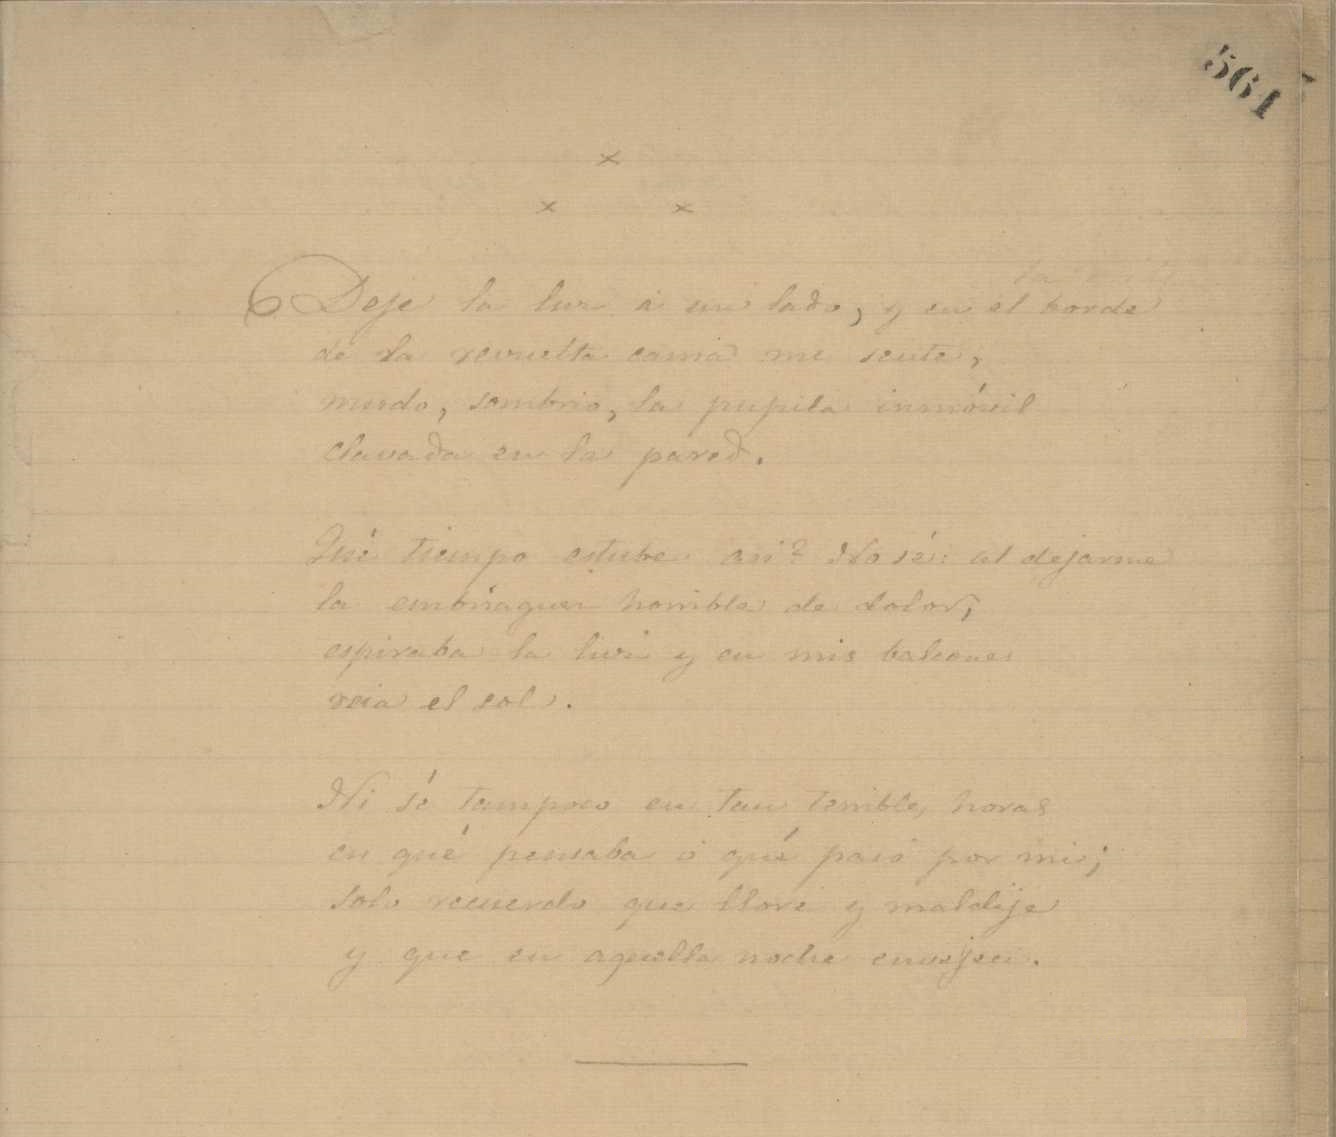 561
× 
× ×
Deje la luz á un lado, y en el borde
de la revuelta cama me senté,
mudo, sombrio, la pupila inmóvil
clavada en la pared.
Qué tiempo estube asi? No sé: al dejarme
la embriaguez horrible de dolor,
espiraba la luz y en mis balcones
reia el sol.
Ni sé tampoco en tan terribles horas
en qué pensaba ó qué pasó por mi;
solo recuerdo que lloré y maldije
y que en aquella noche envejeci.